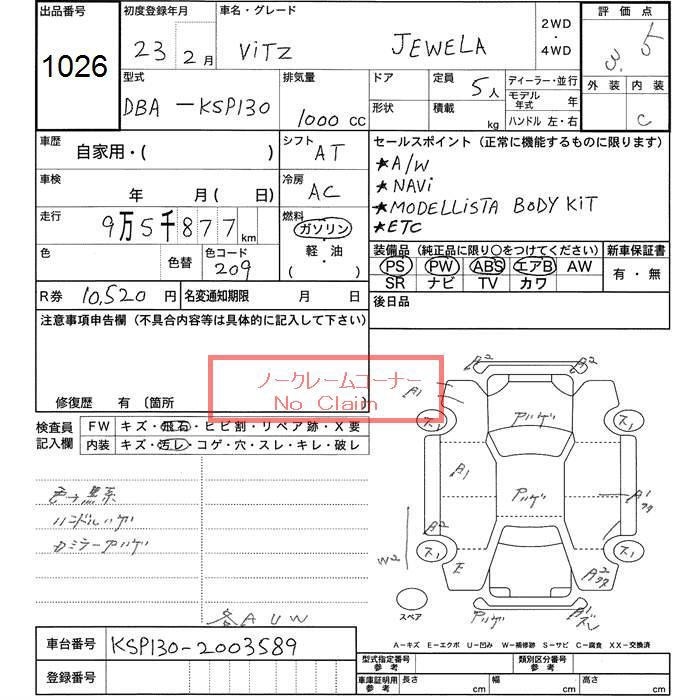 出品番号
1026
初度登録年月
23 2月
車名・グレード
ViTZ JEWELA
2WD
・
4WD
評価点
3.5
型式
DBA-KSP130
排気量
1000 cc
ドア
定員
5人
ディーラー・並行
モデル年式 年
ハンドル 左・右
形状
積載 kg
外装 内装
C
車歴
自家用・( )
シフト
AT
車検
年 月( 日)
冷房
AC
走行
9万5千877 km
燃料
ガソリン
軽・油
( )
色
色替
色コード
209
R券 10,520 円
名変通知期限 月 日
セールスポイント(正常に機能するものに限ります)
★A/W
★NAVi
★MODELLiSTA BODY KiT
★ETC
装備品(純正品に限り○をつけてください)
新車保証書
PS PW ABS エアB AW
有・無
SR ナビ TV カワ
後日品
注意事項申告欄(不具合内容等は具体的に記入して下さい)
ノークレームコーナー
No Claim
修復歴 有 〔箇所
検査員記入欄
FW キズ・飛石・ヒビ割・リペア跡・X要
内装 キズ・汚レ・コゲ・穴・スレ・キレ・破レ
色+黒系
ハンドルハゲ
各AUW
A2 A2
A1
ス1 ス1
アハゲ
A1 アハゲ A1
A2
W2
ス1 ス1
E
A2
スペア
アハゲ
A1
A-キズ E-エクボ U-凹み W-補修跡 S-サビ C-腐食 XX-交換済
車台番号 KSP130-2003589
登録番号
型式指定番号 参考
類別区分番号 参考
車庫証明用 参考
長さ cm
幅 cm
高さ cm